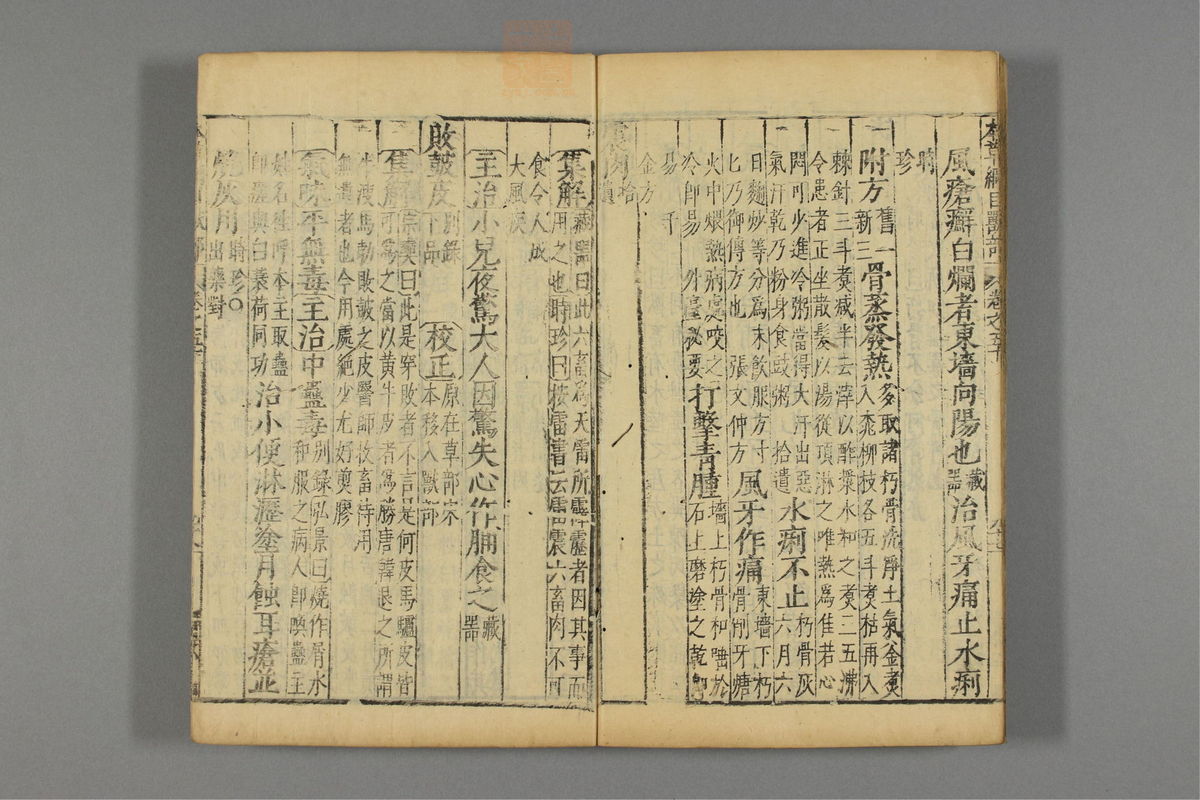 本草綱目獸部 卷之五十
風瘡癬白爛者東墻向陽也藏器治風牙痛止水痢
時珍
附方舊一新三骨蒸發熱多取諸朽骨洗淨土氣釜煑入桃柳枝各五斗煑枯再入
棘針三斗煑减半去滓以酢漿水和之煑三五沸令患者正坐散髮以湯從頂淋之唯熱爲佳若心
悶可少進冷粥當得大汗出惡氣汗乾乃粉身食豉粥 拾遺 水痢不止朽骨灰六月六
日麯炒等分爲末飲服方寸匕乃御傳方也 張文仲方 風牙作痛東墻下朽骨削牙㗖
火中煨熱病處咬之冷即易 外臺祕要 打擊青腫墻上朽骨和唾於石上磨塗之乾即
易 千金方
震肉拾遺
集解藏器曰此六畜爲天雷所霹靂者因其事而用之也時珍曰按雷書云雷震六畜肉不可
食令人成大風疾
主治小兒夜驚大人因驚失心作脯食之藏器
敗鼓皮别錄下品 校正原在草部宋本移入獸部
集解宗奭曰此是穿敗者不言是何皮馬驢皮皆可爲之當以黄牛皮者爲勝唐韓退之所謂
牛溲馬勃敗鼓之皮醫師收畜待用無遺者也今用處絶少尤好煎膠
氣味平無毒主治中蠱毒别錄弘景曰燒作屑水和服之病人即喚蠱主
姓名往呼本主取蠱即瘥與白蘘荷同功治小便淋瀝塗月蝕耳瘡並
燒灰用時珍〇出藥對